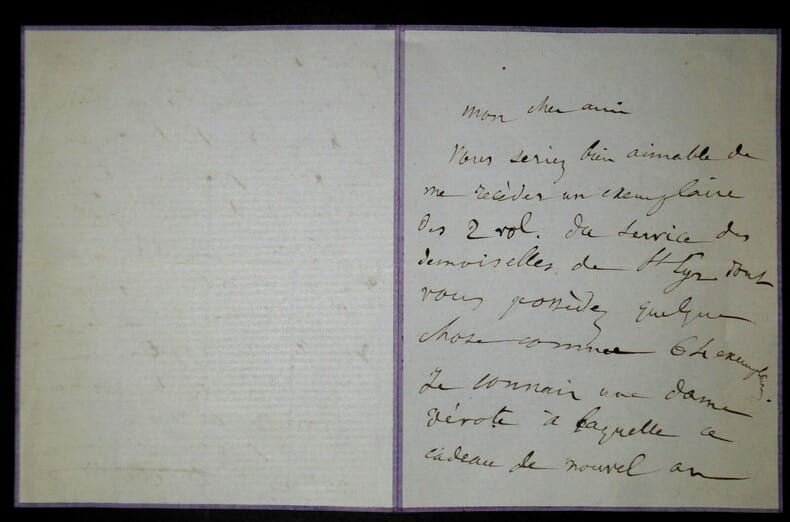 mon cher ami
Vous seriez bien aimable de
me recéder un exemplaire
des 2 vol. du service des
demoiselles de St Cyr dont
vous possédez quelque
chose comme 64 exemplaires.
Je connais une dame
dévote à laquelle ce
cadeau de nouvel an